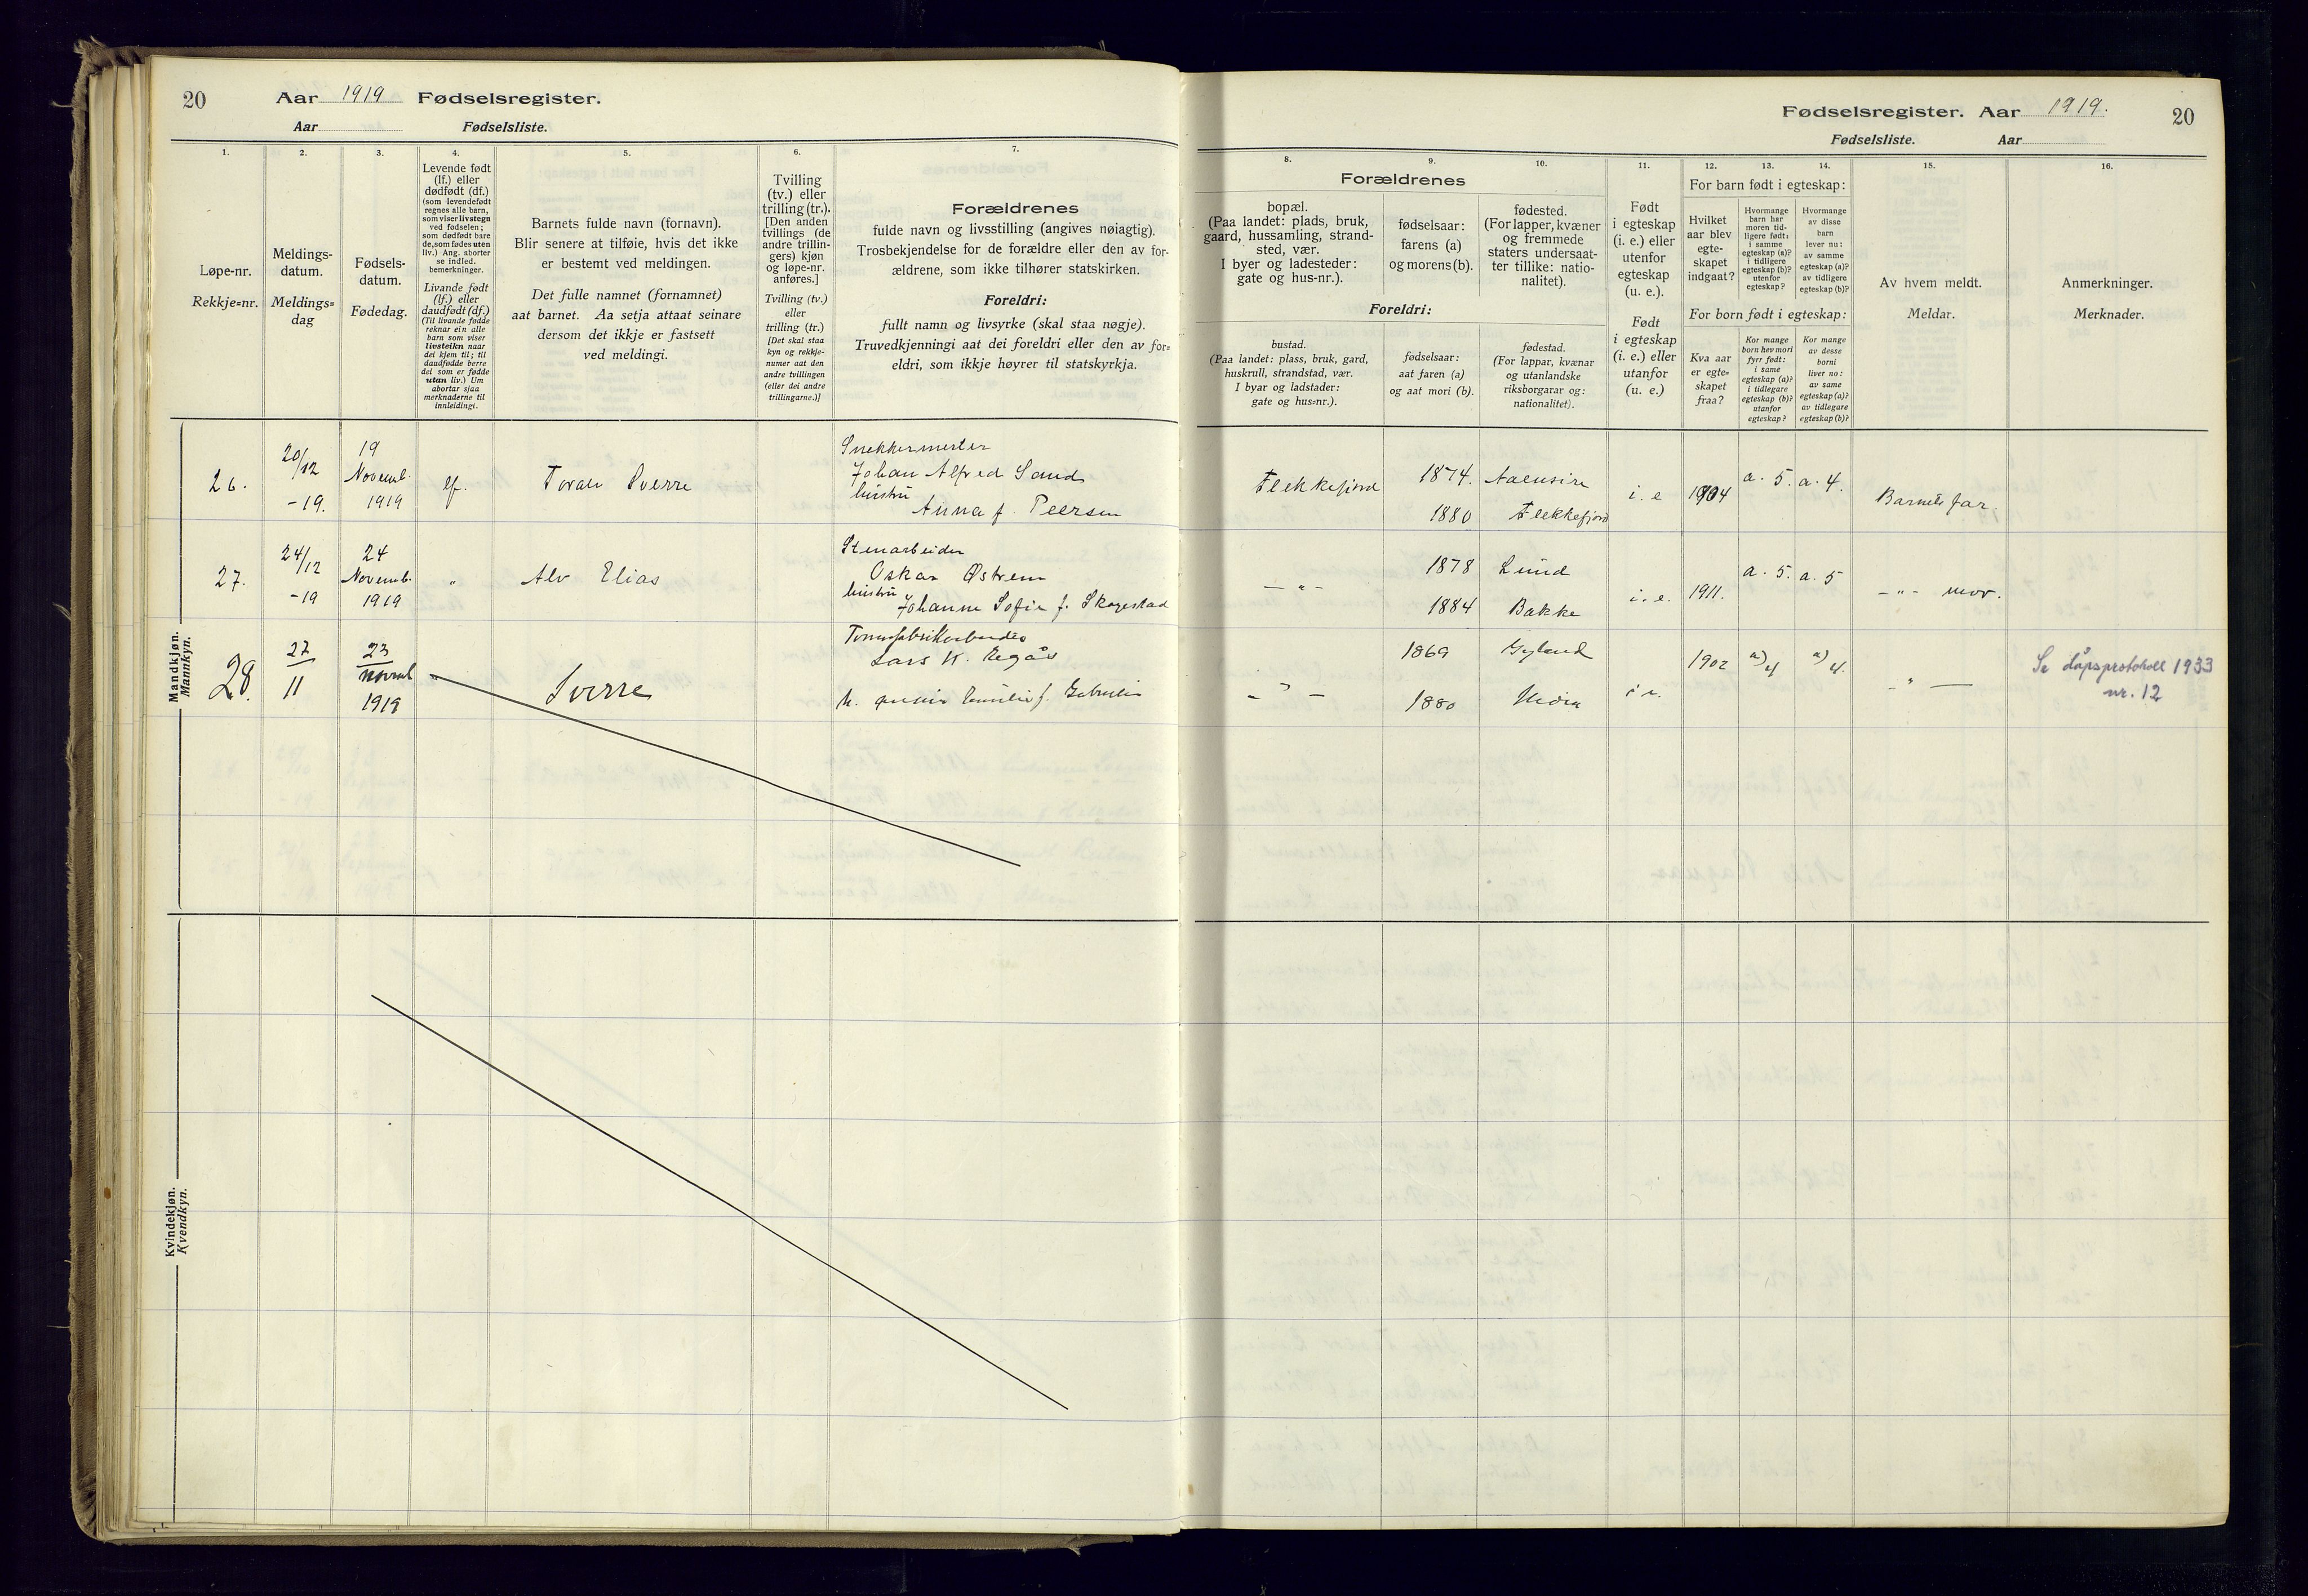 20 Aar 1919 Fødselsregister.
Aar Fødselsliste.
1.
Løpe-nr.
Rekkje=nr.
2.
Meldings-
datum.
Meldings=
dag
3.
Fødsels-
datum.
Fødedag.
4.
Levende født
(lf.) eller
dødfødt (df.)
(som levendefødt
regnes alle barn,
som viser livstegn
ved fødselen;
som dødfødt bare
de, som fødes uten
liv.) Ang. aborter
se indled.
bemerkninger.
Livande født
(lf.) eller
daudfødt (df.)
(Til livande fødde
reknar ein alle
barn som viser
livsteikn naar
dei kjem til; til
daudfødde berre
dei som er fødde
utan liv.) Um
abortar sjaa
merknaderne til
innleidingi.
5.
Barnets fulde navn (fornavn).
Blir senere at tilføie, hvis det ikke
er bestemt ved meldingen.
Det fulle namnet (fornamnet)
aat barnet. Aa setja attaat seinare
dersom det ikkje er fastsett
ved meldingi.
6.
Tvilling
(tv.) eller
trilling (tr.).
[Den anden
tvillings (de
andre trillin-
gers) kjøn
og løpe-nr.
anføres.]
Tvilling (tv.)
eller
trilling (tr.)
[Det skal staa
kyn og rekkje-
numer aat den
andre tvillingen
(eller dei andre
trillingarne.)]
7.
Forældrenes
fulde navn og livsstilling (angives nøiagtig).
Trosbekjendelse for de forældre eller den av for-
ældrene, som ikke tilhører statskirken.
Foreldri:
fullt namn og livsyrke (skal staa nøgje).
Truvedkjenningi aat dei foreldri eller den av for=
eldri, som ikkje høyrer til statskyrkja.
Mandkjøn.
Mannkyn.
26.
20/12
-19.
19
Novemb.
1919
lf.
Toralv Sverre
Snekkermester
Johan Alfred Sand
hustru
Anna f. Peersen
27.
24/12
-19
24
Novemb.
1919
"
Alv Elias
Stenarbeider
Oskar Østrem
hustru
Johanne Sofie f. Skogestad
28.
27
11
23
Novemb
1919
Sverre
Lars K.
Kvindekjøn.
Kvendkyn.
Fødselsregister. Aar 1919. 20
Fødselsliste. Aar
8.
Forældrenes
bopæl.
(Paa landet: plads, bruk,
gaard, hussamling, strand-
sted, vær.
I byer og ladesteder:
gate og hus-nr.).
Foreldri:
bustad.
(Paa landet: plass, bruk, gard,
huskrull, strandstad, vær.
I byar og ladstader:
gate og hus=nr.).
9.
fødselsaar:
farens (a)
og morens (b).
fødselsaar:
aat faren (a)
og aat mori (b).
10.
fødested.
(For lapper, kvæner
og fremmede
staters undersaat-
ter tillike: natio-
nalitet).
fødestad.
(For lappar, kvænar
og utanlandske
riksborgarar og:
nationalitet).
11.
Født
i egteskap
(i. e.) eller
utenfor
egteskap
(u. e.).
Født
i egteskap
(i. e.) eller
utanfor
(u. e.)
12. 13. 14.
For barn født i egteskap:
Hvilket
aar blev
egte-
skapet
indgaat?
Hvormange
barn har
moren tid-
ligere født:
i samme
egteskap (a)?
i tidligere
egteskap (b)?
utenfor
egteskap?
Hvormange
av disse
barn
lever nu:
av samme
egteskap (a)?
av tidligere
egteskap (b)?
For born født i egteskap:
Kva aar
er egte=
skapet
fraa?
Kor mange
born hev mori
fyrr født:
i same
egteskap (a)?
i tidlegare
egteskap (b)?
utanfor
egteskap?
Kor mange
av desse
borni
liver no:
av same
egteskap (a)?
av tidlegare
egteskap (b)?
15.
Av hvem meldt.
Meldar.
16.
Anmerkninger.
Merknader.
Flekkefjord
1874.
1880
Aaensire
Flekkefjord
i. e
1904
a. 5. a. 4.
Barnets far.
- " -
1878
1884
Lund
Bakke
i. e.
1911.
a. 5. a. 5
- " - mor.
- " -
1869
1880
Gyland
Hidra
i e.
1902
a) 4
a) 4.
- " -
Se dåpsprotokoll 1933
nr. 12